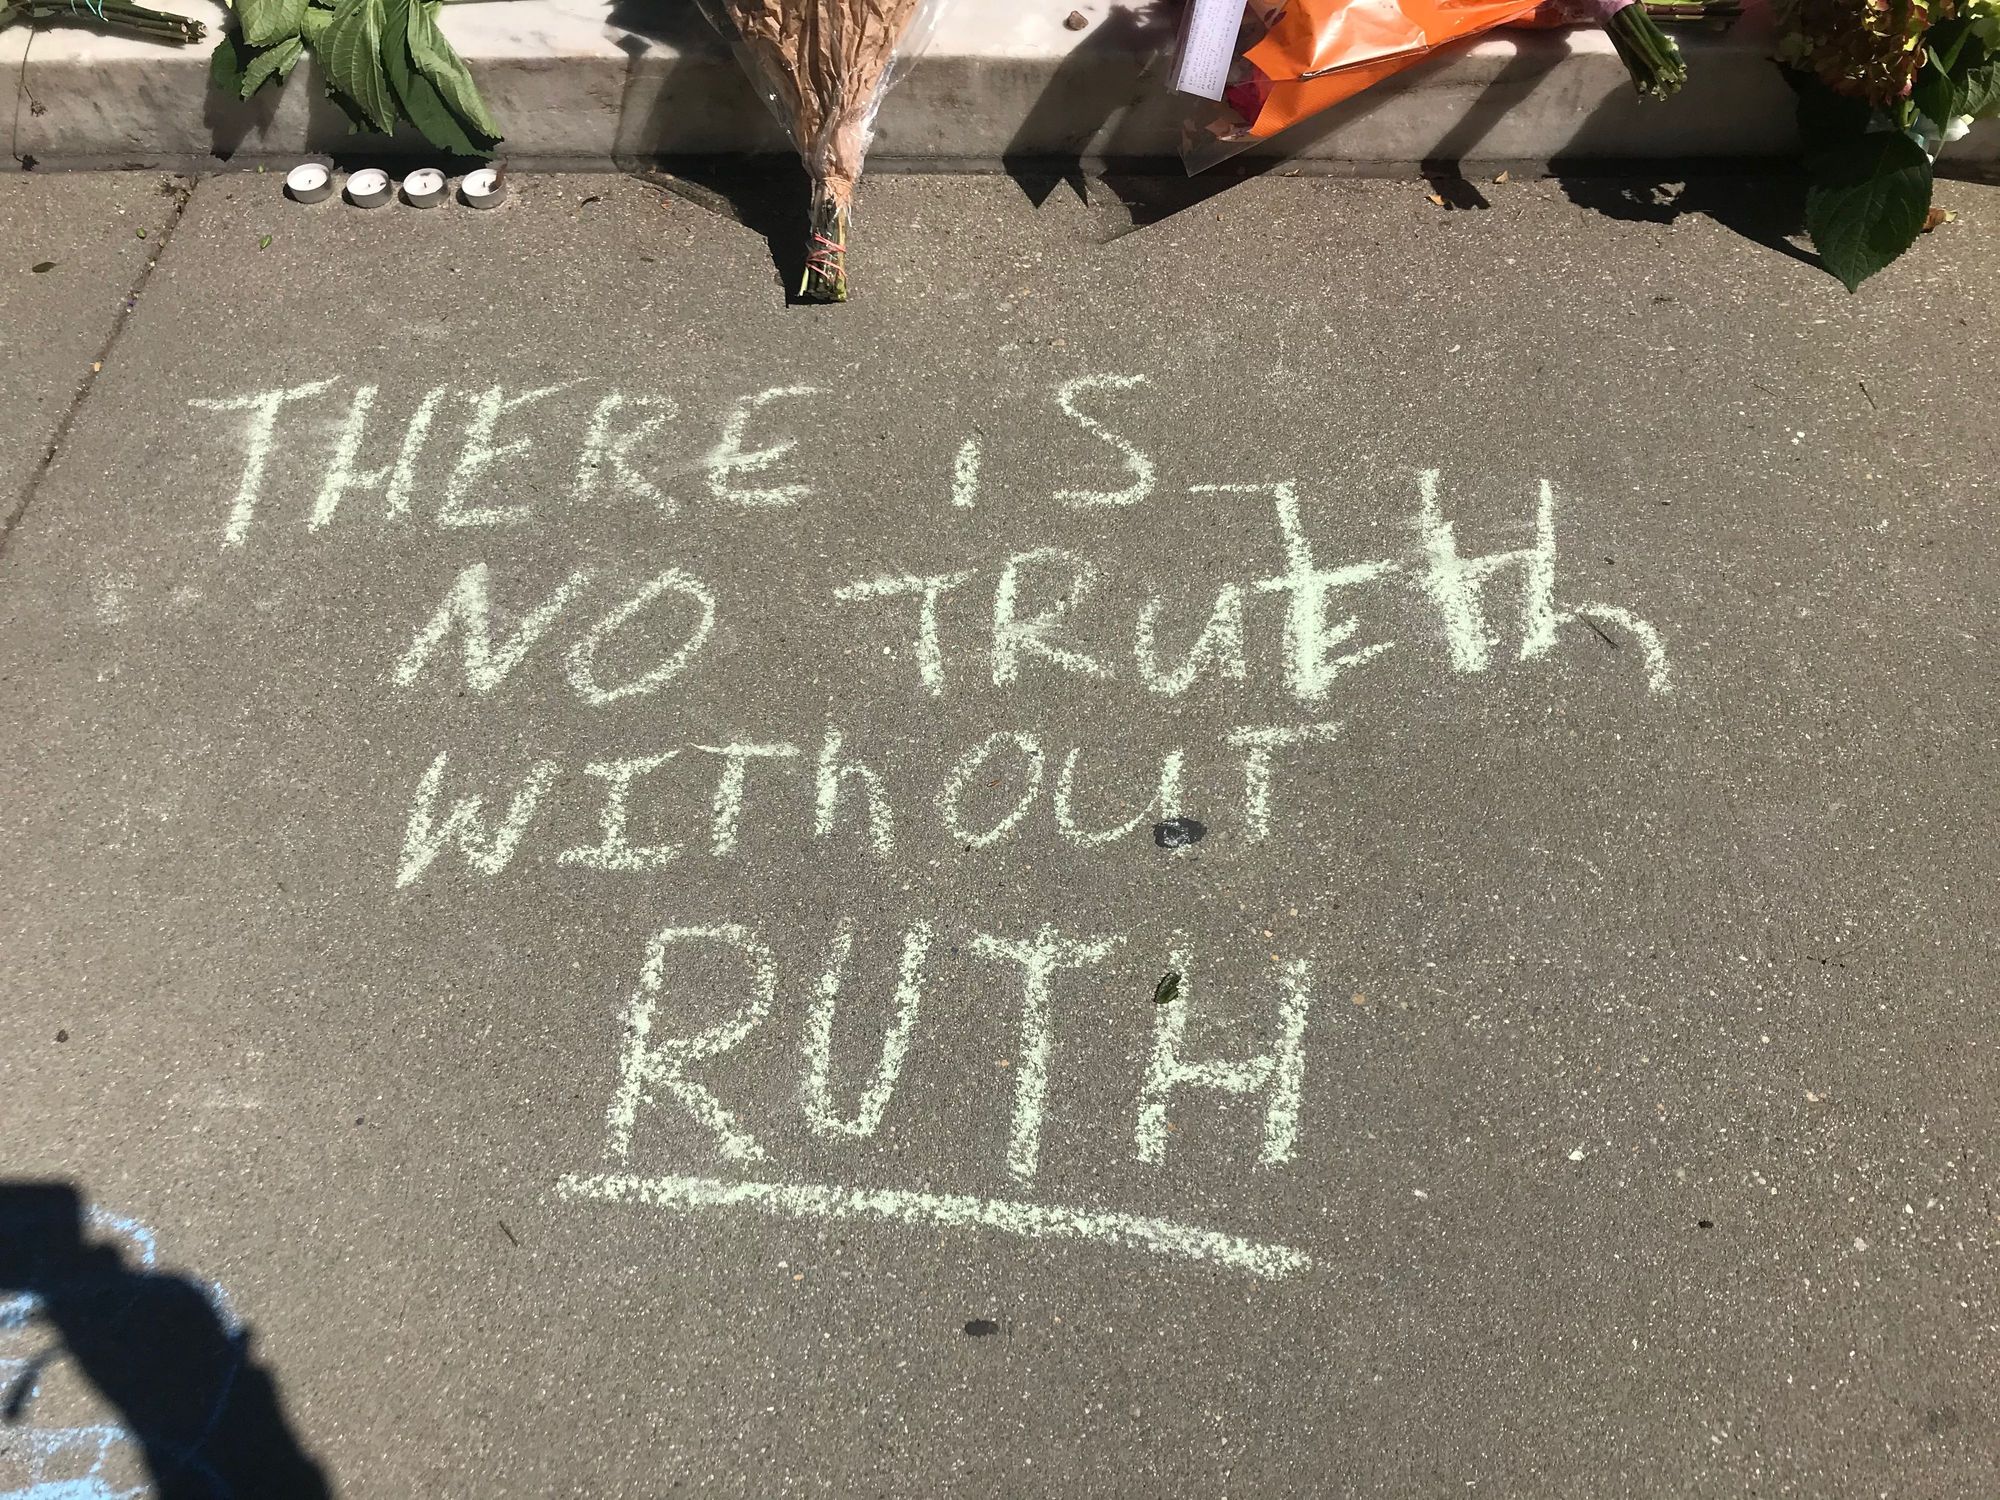 THERE IS
NO TRUTH
WITHOUT
RUTH